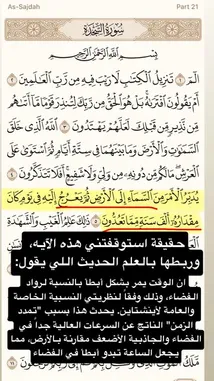 As-Sajdah
Part 21
سُورَةُ السَّجْدَةِ
بِسْمِ اللَّهِ الرَّحْمَٰنِ الرَّحِيمِ
الٓمٓ ١ تَنزِيلُ ٱلْكِتَٰبِ لَا رَيْبَ فِيهِ مِن رَّبِّ ٱلْعَٰلَمِينَ ٢
أَمْ يَقُولُونَ ٱفْتَرَىٰهُ بَلْ هُوَ ٱلْحَقُّ مِن رَّبِّكَ لِتُنذِرَ قَوْمًا مَّآ أَتَىٰهُم
مِّن نَّذِيرٍ مِّن قَبْلِكَ لَعَلَّهُمْ يَهْتَدُونَ ٣ ٱللَّهُ ٱلَّذِى خَلَقَ
ٱلسَّمَٰوَٰتِ وَٱلْأَرْضَ وَمَا بَيْنَهُمَا فِى سِتَّةِ أَيَّامٍ ثُمَّ ٱسْتَوَىٰ عَلَى
ٱلْعَرْشِ مَا لَكُم مِّن دُونِهِۦ مِن وَلِىٍّ وَلَا شَفِيعٍ أَفَلَا تَتَذَكَّرُونَ ٤
يُدَبِّرُ ٱلْأَمْرَ مِنَ ٱلسَّمَآءِ إِلَى ٱلْأَرْضِ ثُمَّ يَعْرُجُ إِلَيْهِ فِى يَوْمٍ كَانَ
مِقْدَارُهُۥٓ أَلْفَ سَنَةٍ مِّمَّا تَعُدُّونَ ٥ ذَٰلِكَ عَٰلِمُ ٱلْغَيْبِ وَٱلشَّهَٰدَةِ
حقيقة استوقفتني هذه الآية،
وربطها بالعلم الحديث اللي يقول:
ان الوقت يمر بشكل أبطأ بالنسبة لرواد
الفضاء، وذلك وفقًا لنظريتي النسبية الخاصة
والعامة لأينشتاين. يحدث هذا بسبب "تمدد
الزمن" الناتج عن السرعات العالية جداً في
الفضاء والجاذبية الأضعف مقارنة بالأرض، مما
يجعل الساعة تبدو أبطأ في الفضاء